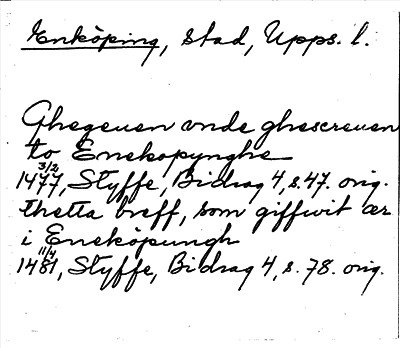 Enköping, stad, Upps. l.
Ghegeuen vnde ghescreuen
to Enekopynghe
3/2
1477, Styffe, Bidrag 4, s. 47. orig.
thetta breff, som giffwit ær
i Eneköpungh
11/4
1481, Styffe, Bidrag 4, s. 78. orig.